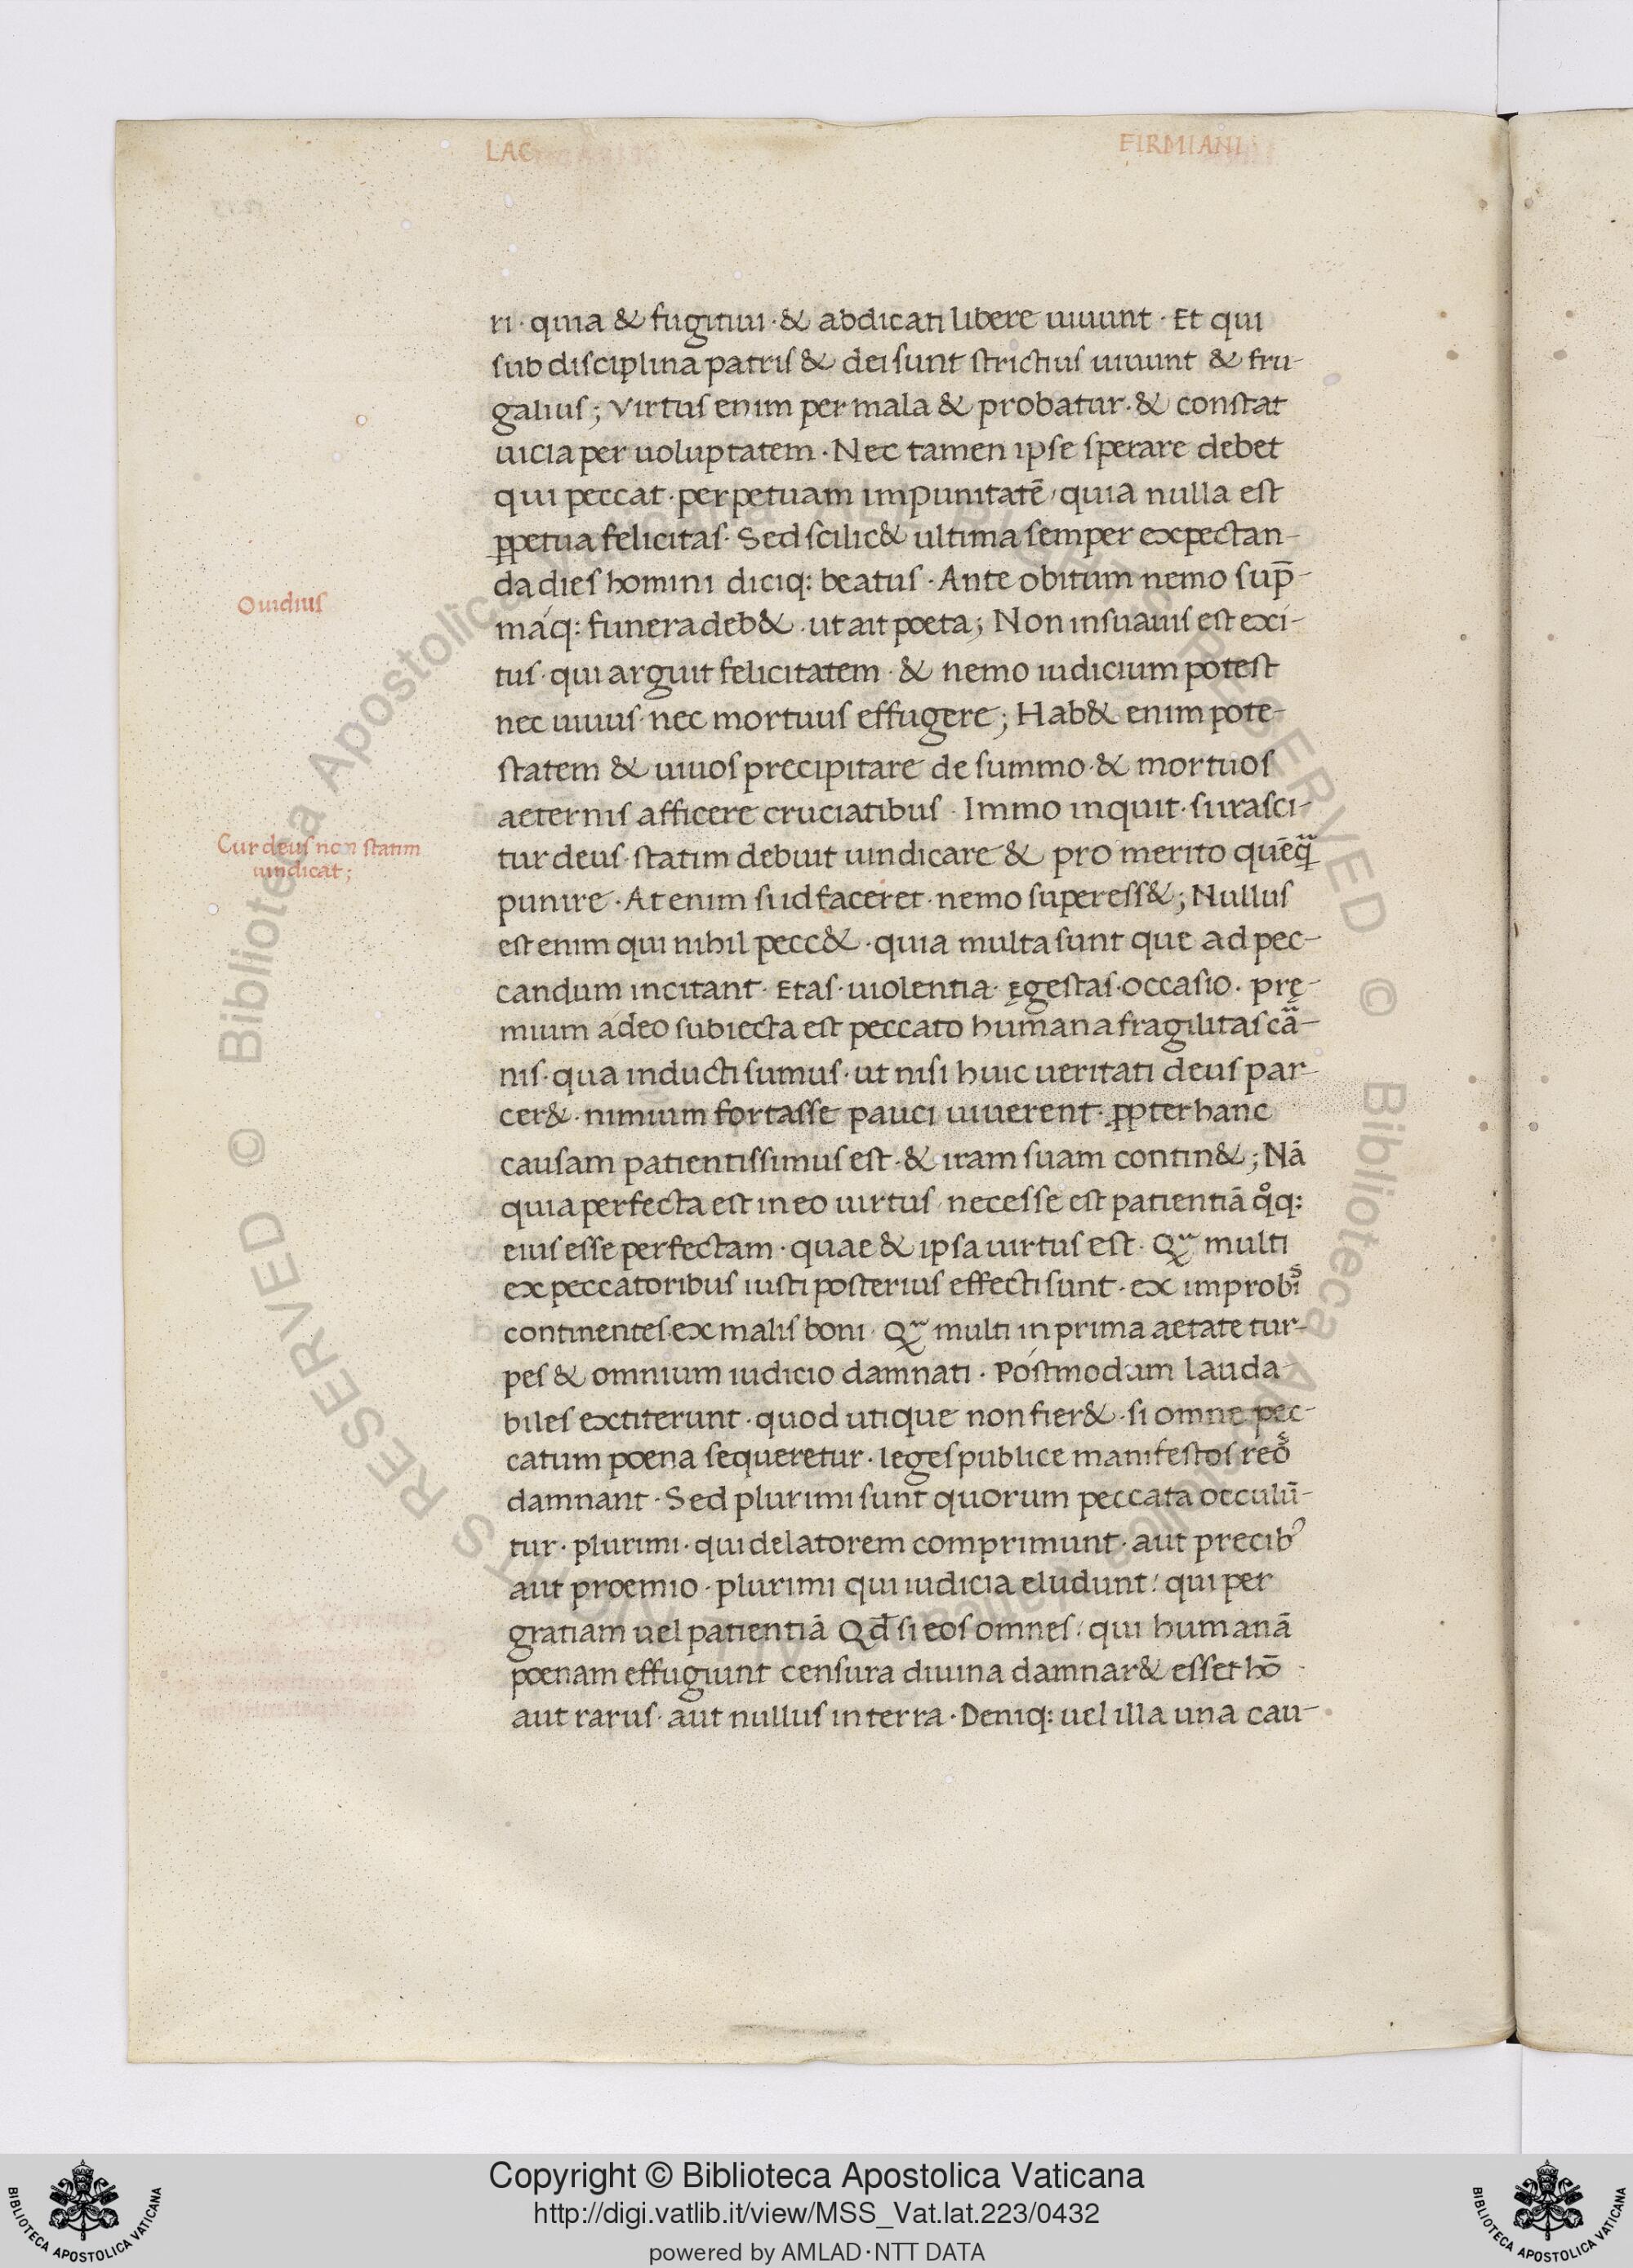 LAC FIRMIANI
ri · quia & fugitiui · & abdicati libere uiuunt · Et qui
sub disciplina patris & dei sunt strictius uiuunt & fru-
galius ; Virtus enim per mala & probatur · & constat
uicia per uoluptatem · Nec tamen ipse sperare debet
qui peccat · perpetuam impunitatē / quia nulla est
ꝑpetua felicitas · Sed scilic& ultima semper expectan-
da dies homini diciq: beatus · Ante obitum nemo sup̄-
Ouidius
maq: funera deb& · ut ait poeta ; Non insuauis est exi-
tus · qui arguit felicitatem · & nemo iudicium potest
nec uiuus · nec mortuus effugere ; Hab& enim pote-
statem & uiuos precipitare de summo · & mortuos
aeternis afficere cruciatibus · Immo inquit · si irasci-
Cur deus non statim
uindicat ;
tur deus · statim debuit uindicare & pro merito quēq̃
punire · At enim si id faceret · nemo superess& ; Nullus
est enim qui nihil pecc& · quia multa sunt que ad pec-
candum incitant · Etas · uiolentia · ęgestas · occasio · prę-
mium adeo subiecta est peccato humana fragilitas ca̅-
nis · qua inducti sumus · ut nisi huic ueritati deus par-
cer& · nimium fortasse pauci uiuerent · ꝓpter hanc
causam patientissimus est · & iram suam contin& ; Nā
quia perfecta est in eo uirtus / necesse est patientiā qͦq:
eius esse perfectam · quae & ipsa uirtus est · Qᷓ multi
ex peccatoribus iusti posterius effecti sunt · ex improbiˢ
continentes · ex malis boni · Qᷓ multi in prima aetate tur-
pes & omnium iudicio damnati · Postmodum lauda-
biles extiterunt · quod utique non fier& · si omne pec-
catum poena sequeretur · leges publice manifestos reoˢ
damnant · Sed plurimi sunt quorum peccata occulū-
tur · plurimi · qui delatorem comprimunt · aut precibꝰ
aut proemio · plurimi qui iudicia eludunt / qui per
gratiam uel patientiā Qd̄ si eos omnes / qui humanā
poenam effugiunt censura diuina damnar& esset hō
aut rarus · aut nullus in terra · Deniq: uel illa una cau-
Copyright © Biblioteca Apostolica Vaticana
http://digi.vatlib.it/view/MSS_Vat.lat.223/0432
powered by AMLAD·NTT DATA
BIBLIOTECA APOSTOLICA VATICANA
BIBLIOTECA APOSTOLICA VATICANA